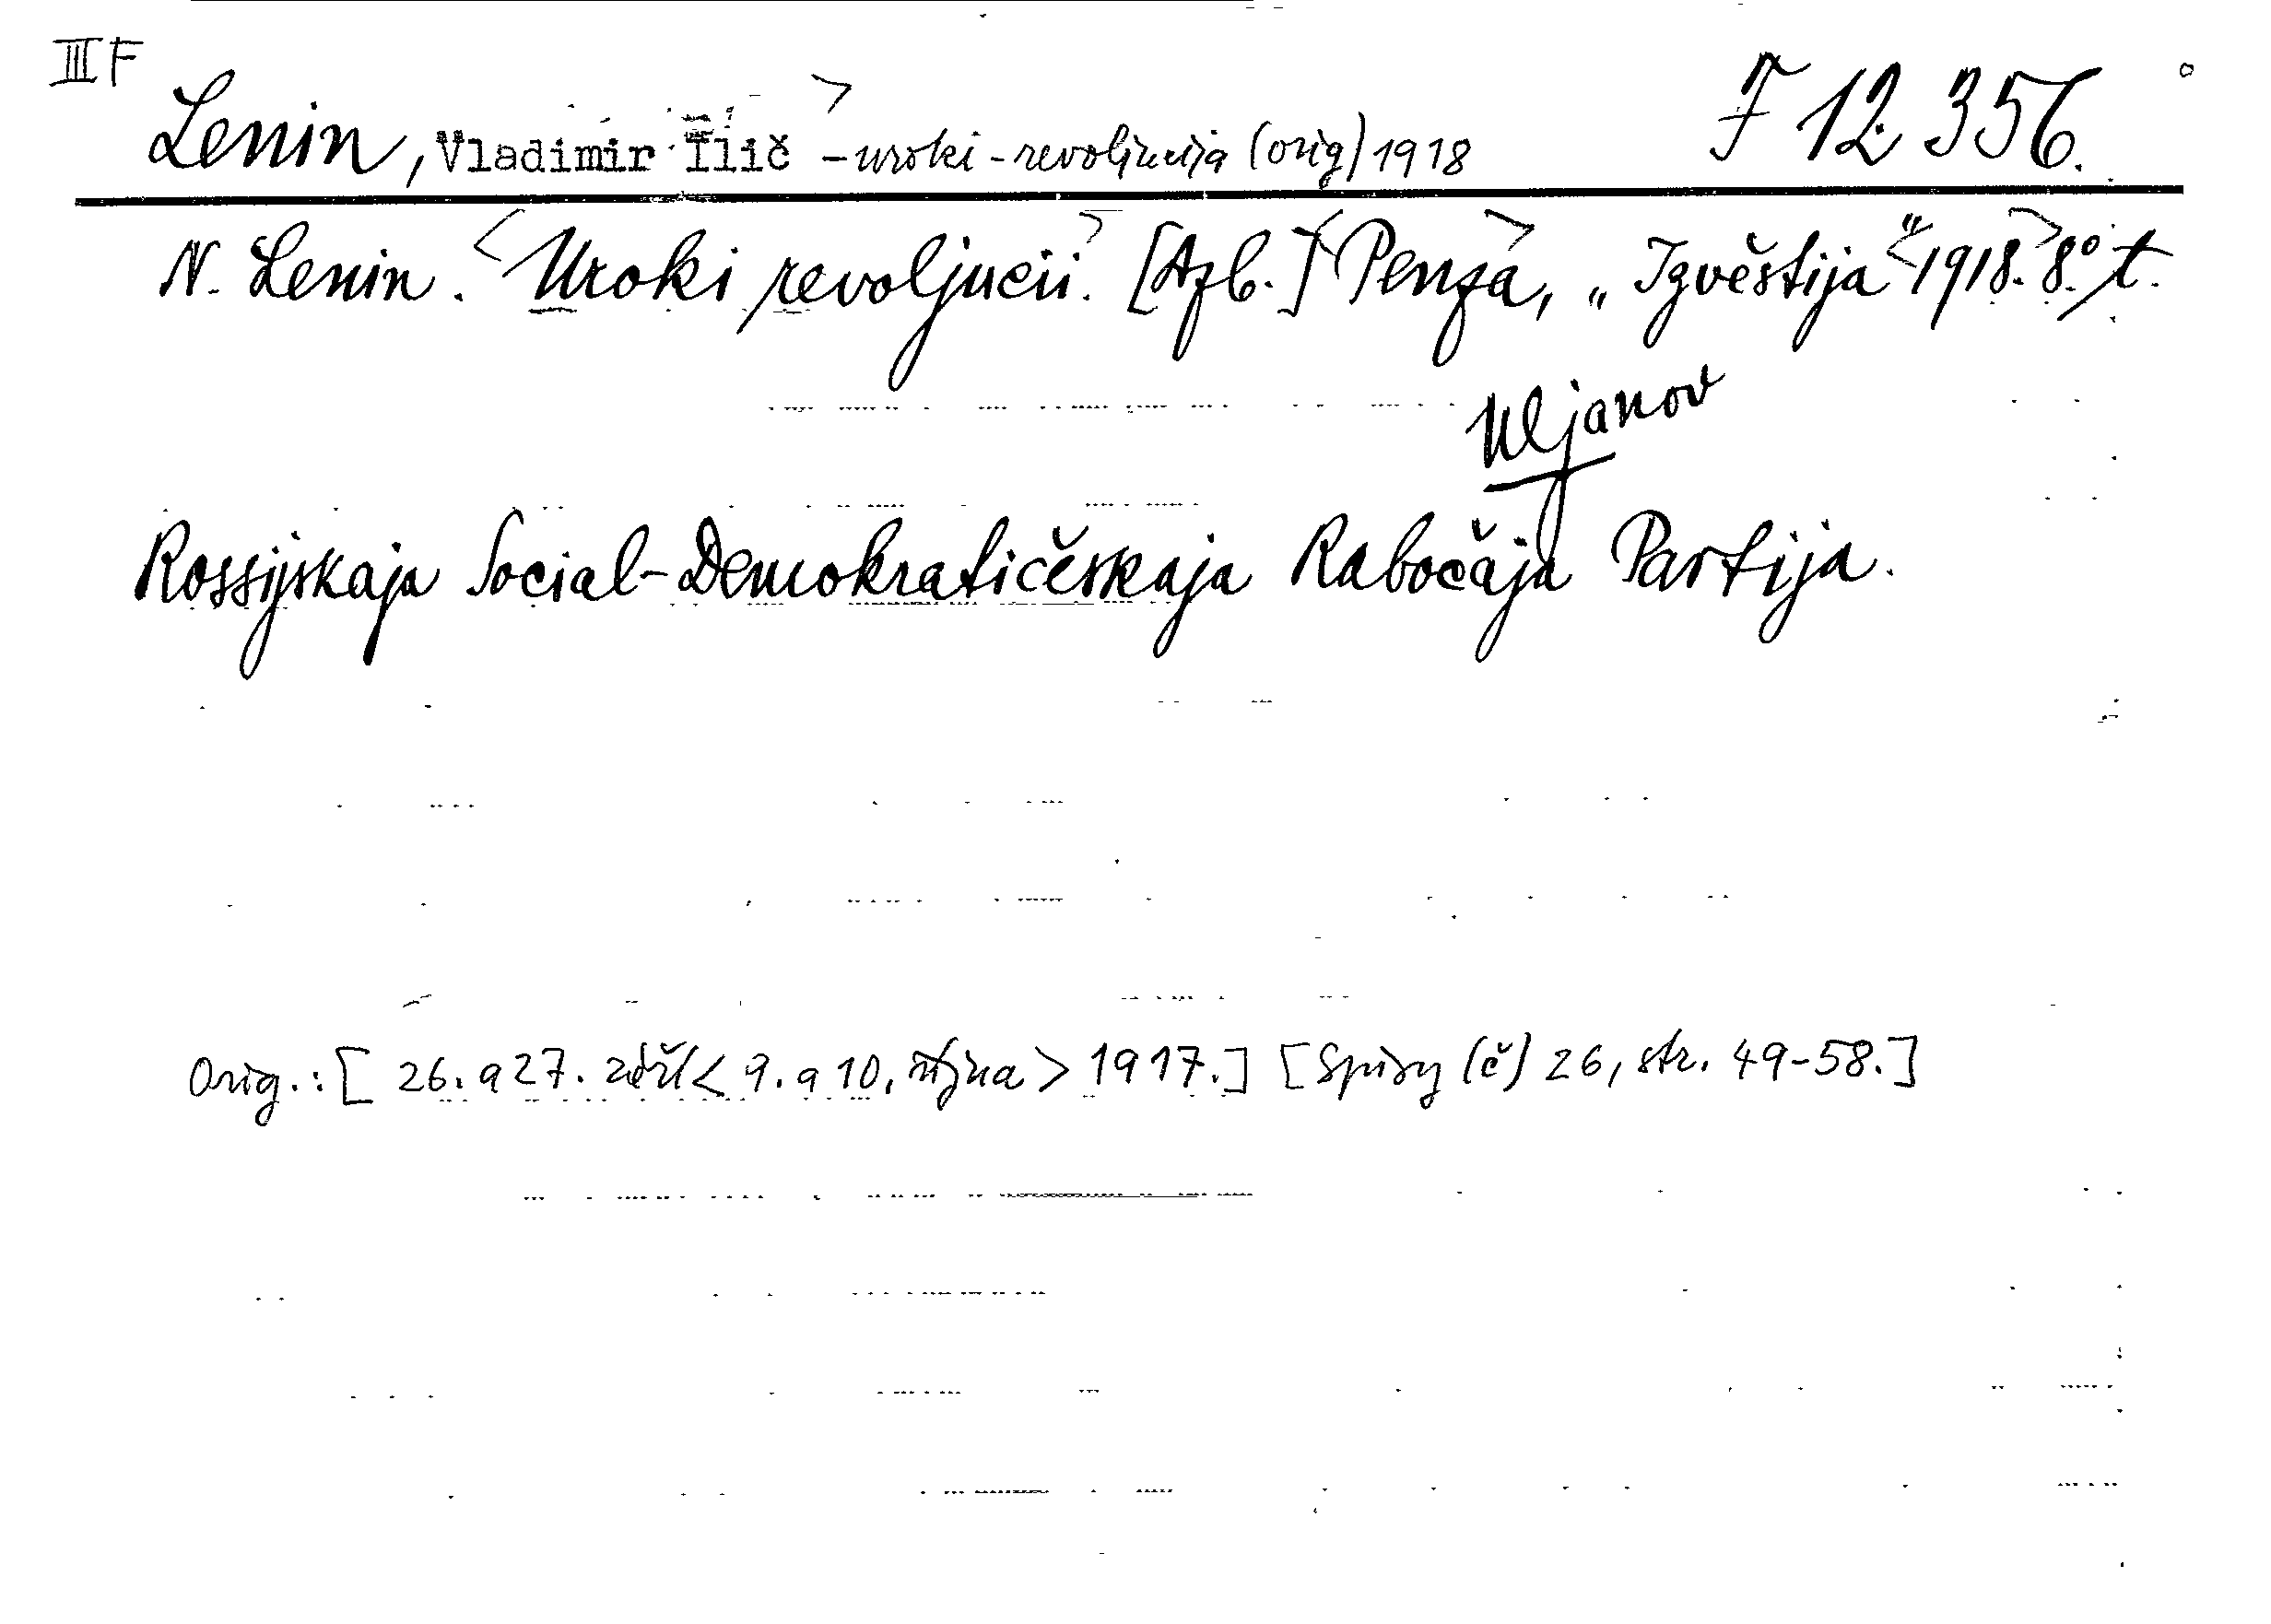 III F
Lenin, Vladimir Ilič > - uroki - revoljucija (orig) 1918 F 12.356.
N. Lenin. <Uroki revoljucii.> [Azb.] <Penza>, „Izvěstija“ <1918.> 8° t.
Uljanov
Rossijskaja Social-Demokratičeskaja Rabočaja Partija.
Orig.: [ 26. a 27. září < 9. a 10. října > 1917.] [Spisy (č) 26, str. 49-58.]